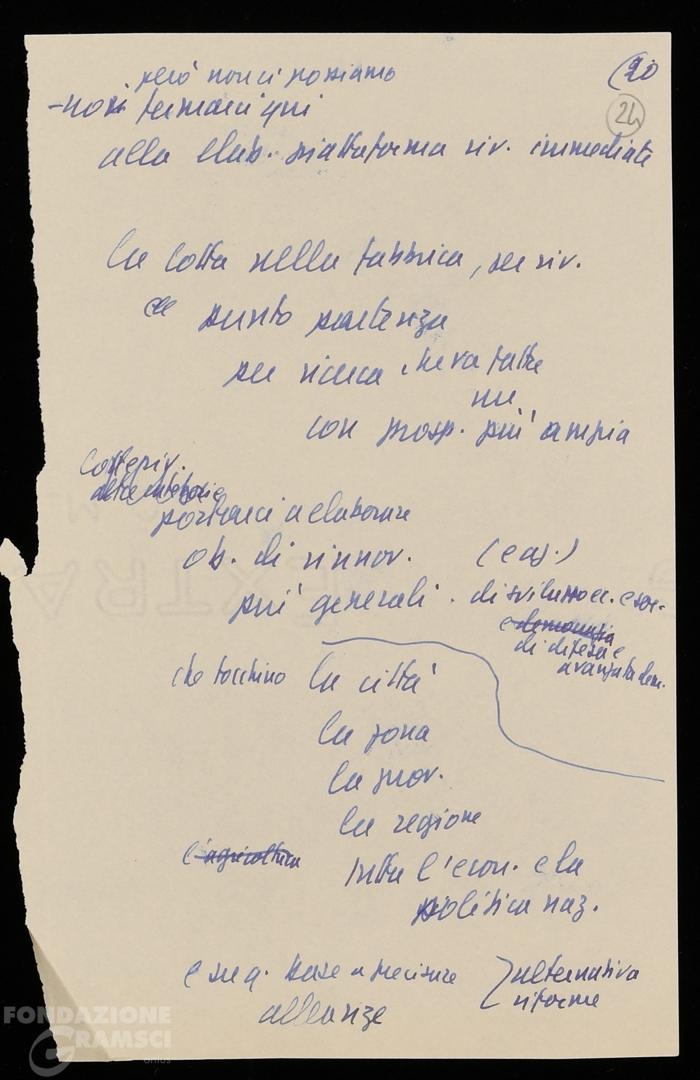 però non ci possiamo
(20
- non fermarci qui
24
alla elab. piattaforma riv. immediate
la lotta nella fabbrica, per riv.
punto partenza
per ricerca che va fatta
con prosp. più ampia
altre categorie
portarci a elaborare
ob. di rinnov. (e ag.)
più generali. di sviluppo ec. e soc.
e democrazia
di difesa e
avanzata dem.
che tocchino la città
la zona
la prov.
la regione
l'agricoltura
tutta l'econ. e la
politica naz.
e su q. base a precisare
alleanze
alternativa
riforme
FONDAZIONE
GRAMSCI
onlus